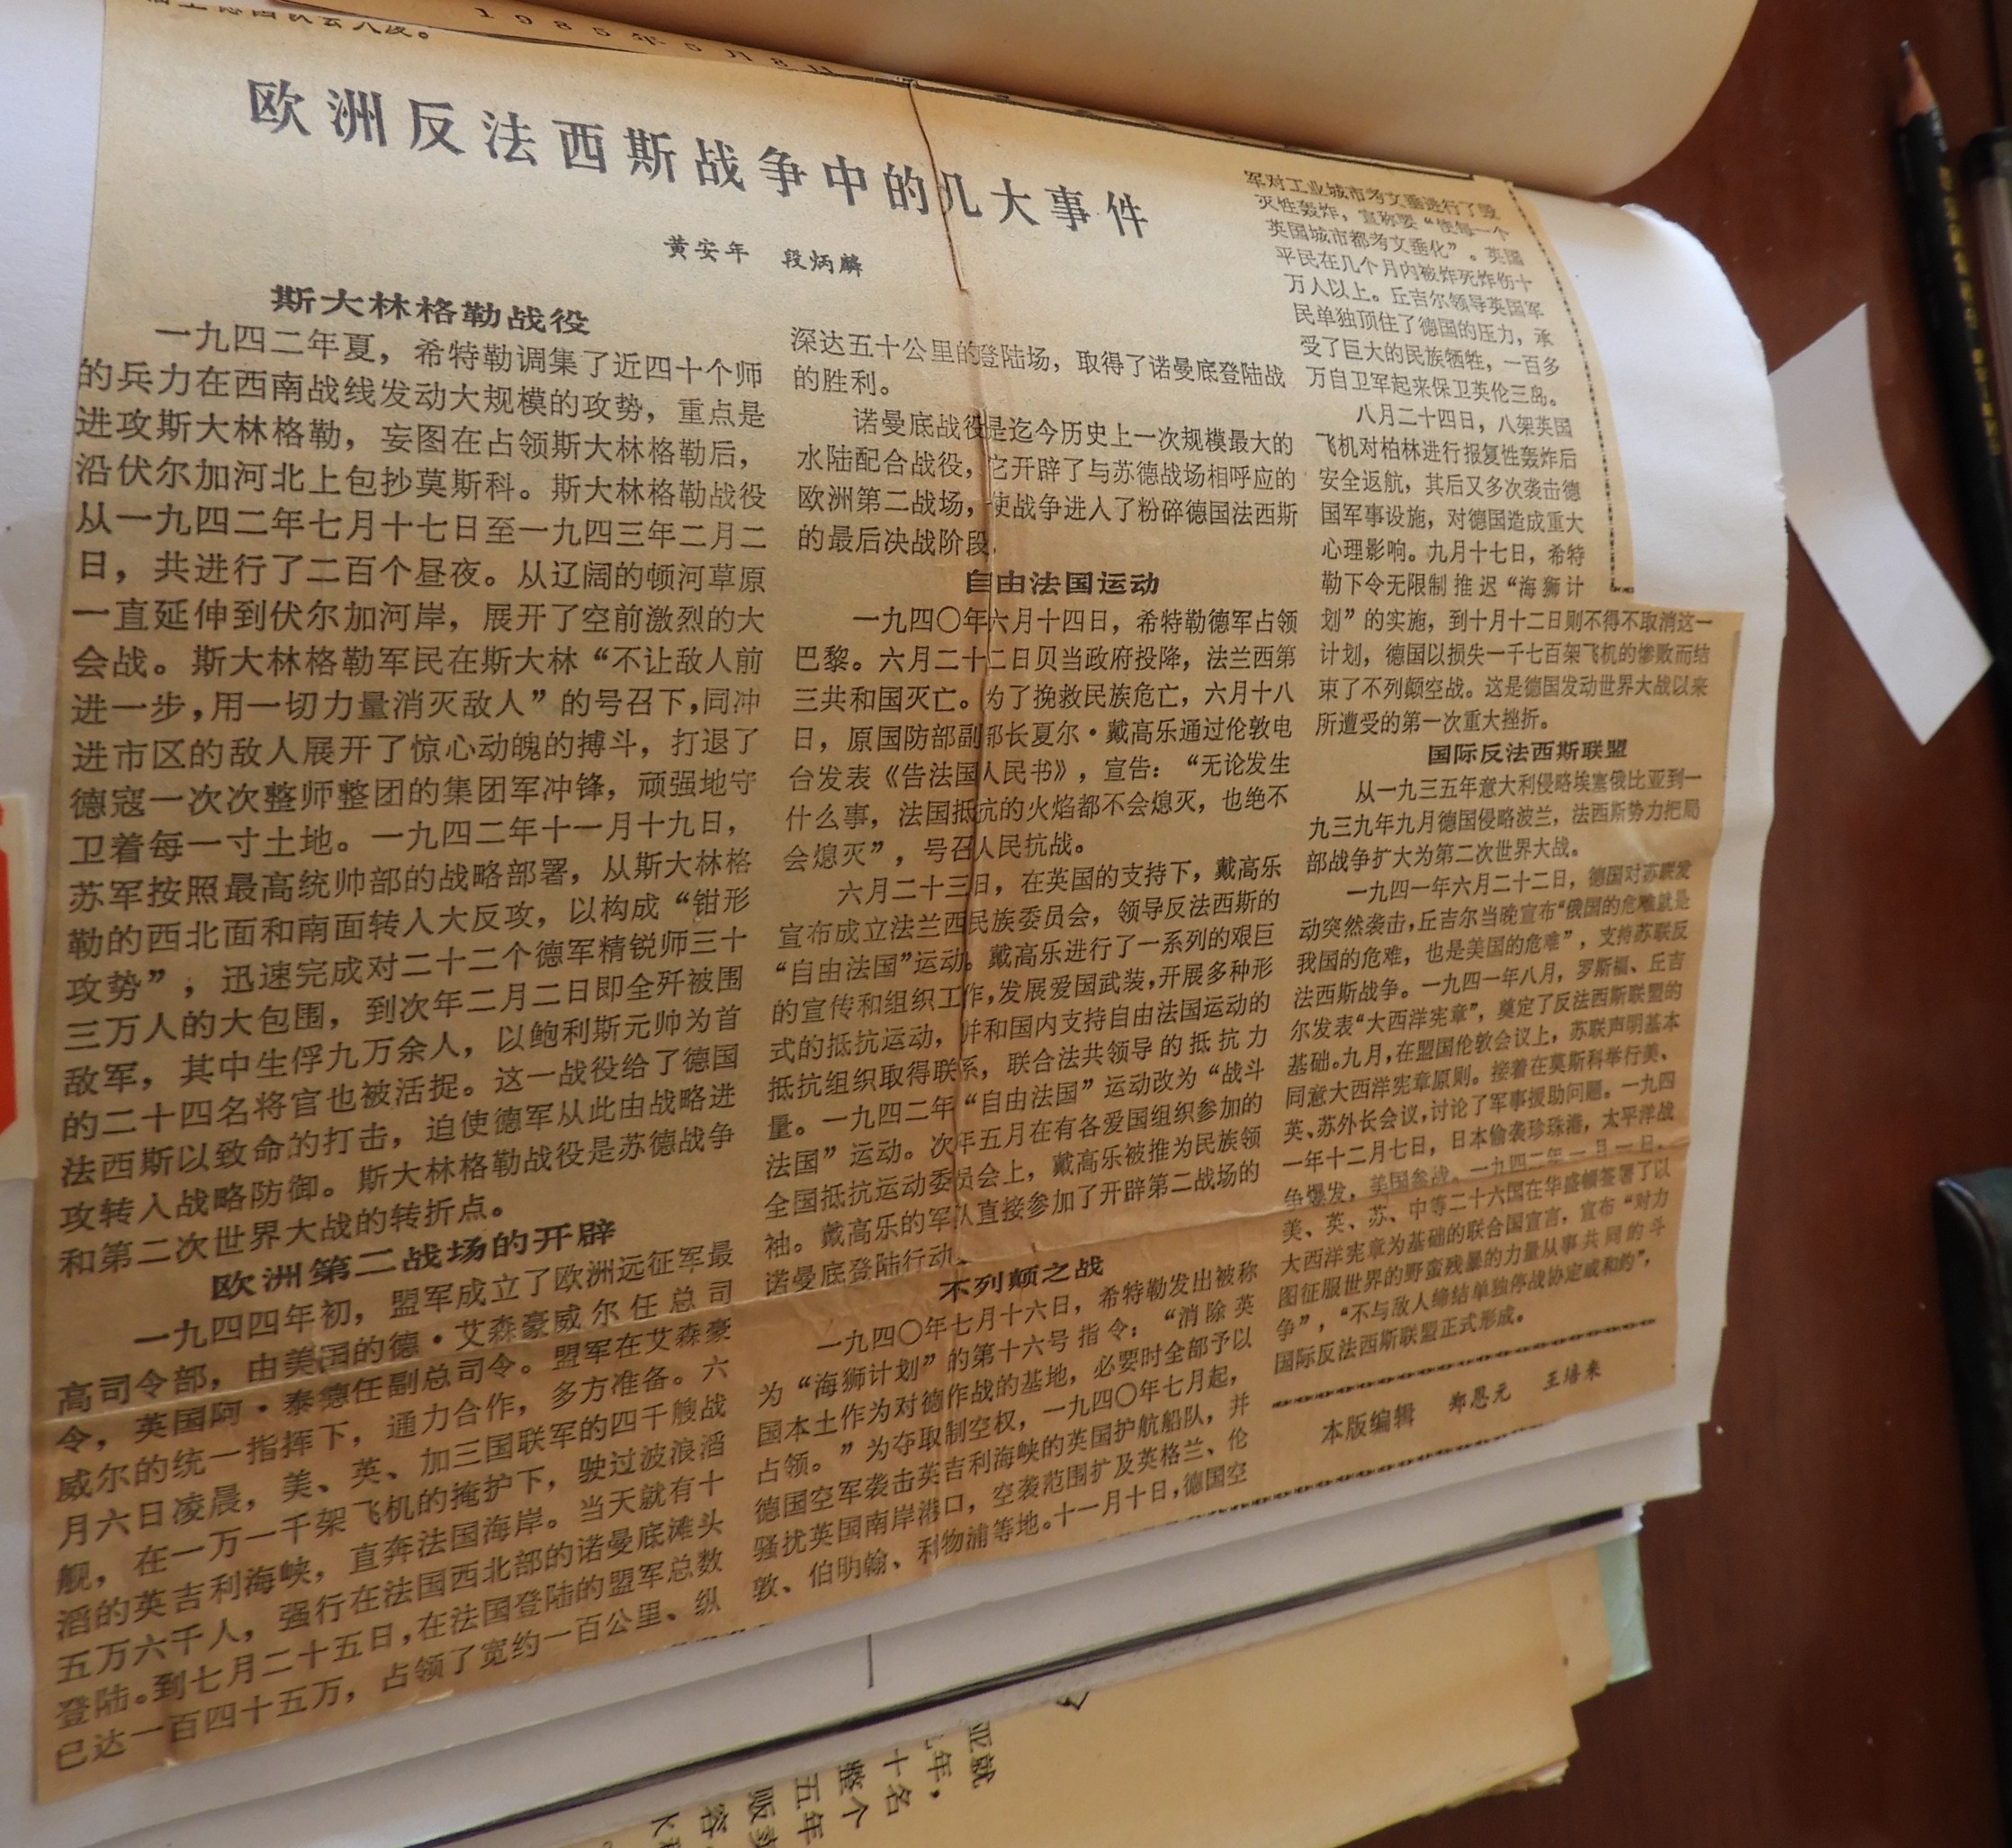 1985年5月8日
欧洲反法西斯战争中的几大事件
黄安年 段炳麟
斯大林格勒战役
一九四二年夏，希特勒调集了近四十个师
的兵力在西南战线发动大规模的攻势，重点是
进攻斯大林格勒，妄图在占领斯大林格勒后，
沿伏尔加河北上包抄莫斯科。斯大林格勒战役
从一九四二年七月十七日至一九四三年二月二
日，共进行了二百个昼夜。从辽阔的顿河草原
一直延伸到伏尔加河岸，展开了空前激烈的大
会战。斯大林格勒军民在斯大林“不让敌人前
进一步，用一切力量消灭敌人”的号召下，同冲
进市区的敌人展开了惊心动魄的搏斗，打退了
德寇一次次整师整团的集团军冲锋，顽强地守
卫着每一寸土地。一九四二年十一月十九日，
苏军按照最高统帅部的战略部署，从斯大林格
勒的西北面和南面转入大反攻，以构成“钳形
攻势”，迅速完成对二十二个德军精锐师三十
三万人的大包围，到次年二月二日即全歼被围
敌军，其中生俘九万余人，以鲍利斯元帅为首
的二十四名将官也被活捉。这一战役给了德国
法西斯以致命的打击，迫使德军从此由战略进
攻转入战略防御。斯大林格勒战役是苏德战争
和第二次世界大战的转折点。
欧洲第二战场的开辟
一九四四年初，盟军成立了欧洲远征军最
高司令部，由美国的德·艾森豪威尔任总司
令，英国阿·泰德任副总司令。盟军在艾森豪
威尔的统一指挥下，通力合作，多方准备。六
月六日凌晨，美、英、加三国联军的四千艘战
舰，在一万一千架飞机的掩护下，驶过波浪滔
滔的英吉利海峡，直奔法国海岸。当天就有十
五万六千人，强行在法国西北部的诺曼底滩头
登陆。到七月二十五日，在法国登陆的盟军总数
已达一百四十五万，占领了宽约一百公里、纵
深达五十公里的登陆场，取得了诺曼底登陆战
的胜利。
诺曼底战役是迄今历史上一次规模最大的
水陆配合战役，它开辟了与苏德战场相呼应的
欧洲第二战场，使战争进入了粉碎德国法西斯
的最后决战阶段。
自由法国运动
一九四〇年六月十四日，希特勒德军占领
巴黎。六月二十二日贝当政府投降，法兰西第
三共和国灭亡。为了挽救民族危亡，六月十八
日，原国防部副部长夏尔·戴高乐通过伦敦电
台发表《告法国人民书》，宣告：“无论发生
什么事，法国抵抗的火焰都不会熄灭，也绝不
会熄灭”，号召人民抗战。
六月二十三日，在英国的支持下，戴高乐
宣布成立法兰西民族委员会，领导反法西斯的
“自由法国”运动。戴高乐进行了一系列的艰巨
的宣传和组织工作，发展爱国武装，开展多种形
式的抵抗运动，并和国内支持自由法国运动的
抵抗组织取得联系，联合法共领导的抵抗力
量。一九四二年“自由法国”运动改为“战斗
法国”运动。次年五月在有各爱国组织参加的
全国抵抗运动委员会上，戴高乐被推为民族领
袖。戴高乐的军队直接参加了开辟第二战场的
诺曼底登陆行动。
不列颠之战
一九四〇年七月十六日，希特勒发出被称
为“海狮计划”的第十六号指令：“消除英
国本土作为对德作战的基地，必要时全部予以
占领。”为夺取制空权，一九四〇年七月起，
德国空军袭击英吉利海峡的英国护航船队，并
骚扰英国南岸港口，空袭范围扩及英格兰、伦
敦、伯明翰、利物浦等地。十一月十日，德国空
军对工业城市考文垂进行了毁
灭性轰炸，宣称要“使每一个
英国城市都考文垂化”。英国
平民在几个月内被炸死炸伤十
万人以上。丘吉尔领导英国军
民单独顶住了德国的压力，承
受了巨大的民族牺牲，一百多
万自卫军起来保卫英伦三岛。
八月二十四日，八架英国
飞机对柏林进行报复性轰炸后
安全返航，其后又多次袭击德
国军事设施，对德国造成重大
心理影响。九月十七日，希特
勒下令无限制推迟“海狮计
划”的实施，到十月十二日则不得不取消这一
计划，德国以损失一千七百架飞机的惨败而结
束了不列颠空战。这是德国发动世界大战以来
所遭受的第一次重大挫折。
国际反法西斯联盟
从一九三五年意大利侵略埃塞俄比亚到一
九三九年九月德国侵略波兰，法西斯势力把局
部战争扩大为第二次世界大战。
一九四一年六月二十二日，德国对苏联发
动突然袭击，丘吉尔当晚宣布“俄国的危难就是
我国的危难，也是美国的危难”，支持苏联反
法西斯战争。一九四一年八月，罗斯福、丘吉
尔发表“大西洋宪章”，奠定了反法西斯联盟的
基础。九月，在盟国伦敦会议上，苏联声明基本
同意大西洋宪章原则。接着在莫斯科举行美、
英、苏外长会议，讨论了军事援助问题。一九四
一年十二月七日，日本偷袭珍珠港，太平洋战
争爆发，美国参战。一九四二年一月一日，
美、英、苏、中等二十六国在华盛顿签署了以
大西洋宪章为基础的联合国宣言，宣布“对力
图征服世界的野蛮残暴的力量从事共同的斗
争”，“不与敌人缔结单独停战协定或和约”，
国际反法西斯联盟正式形成。
本版编辑 郑恩元 王培来